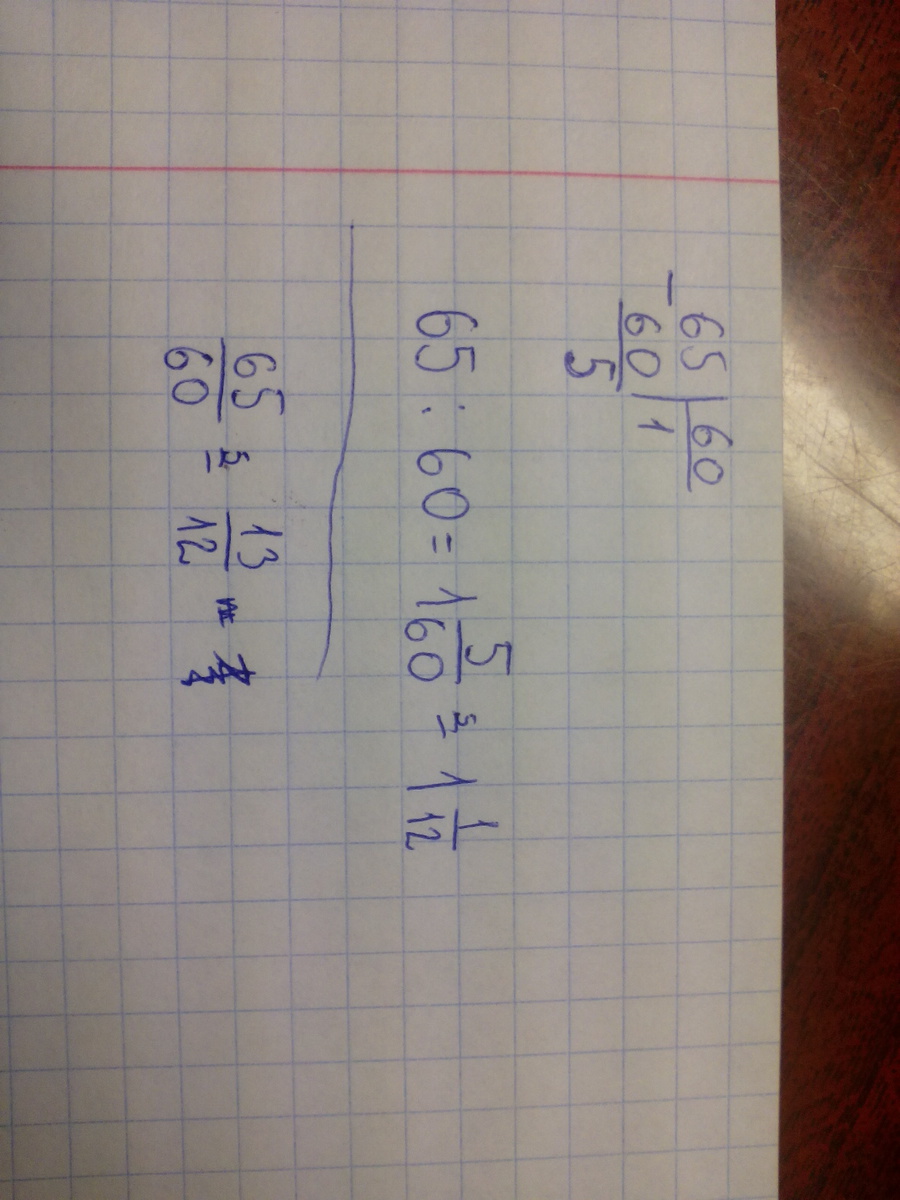 -65 | 60
60 | 1
5
65 : 60 = 1 5/60 = 1 1/12
65/60 = 13/12 =